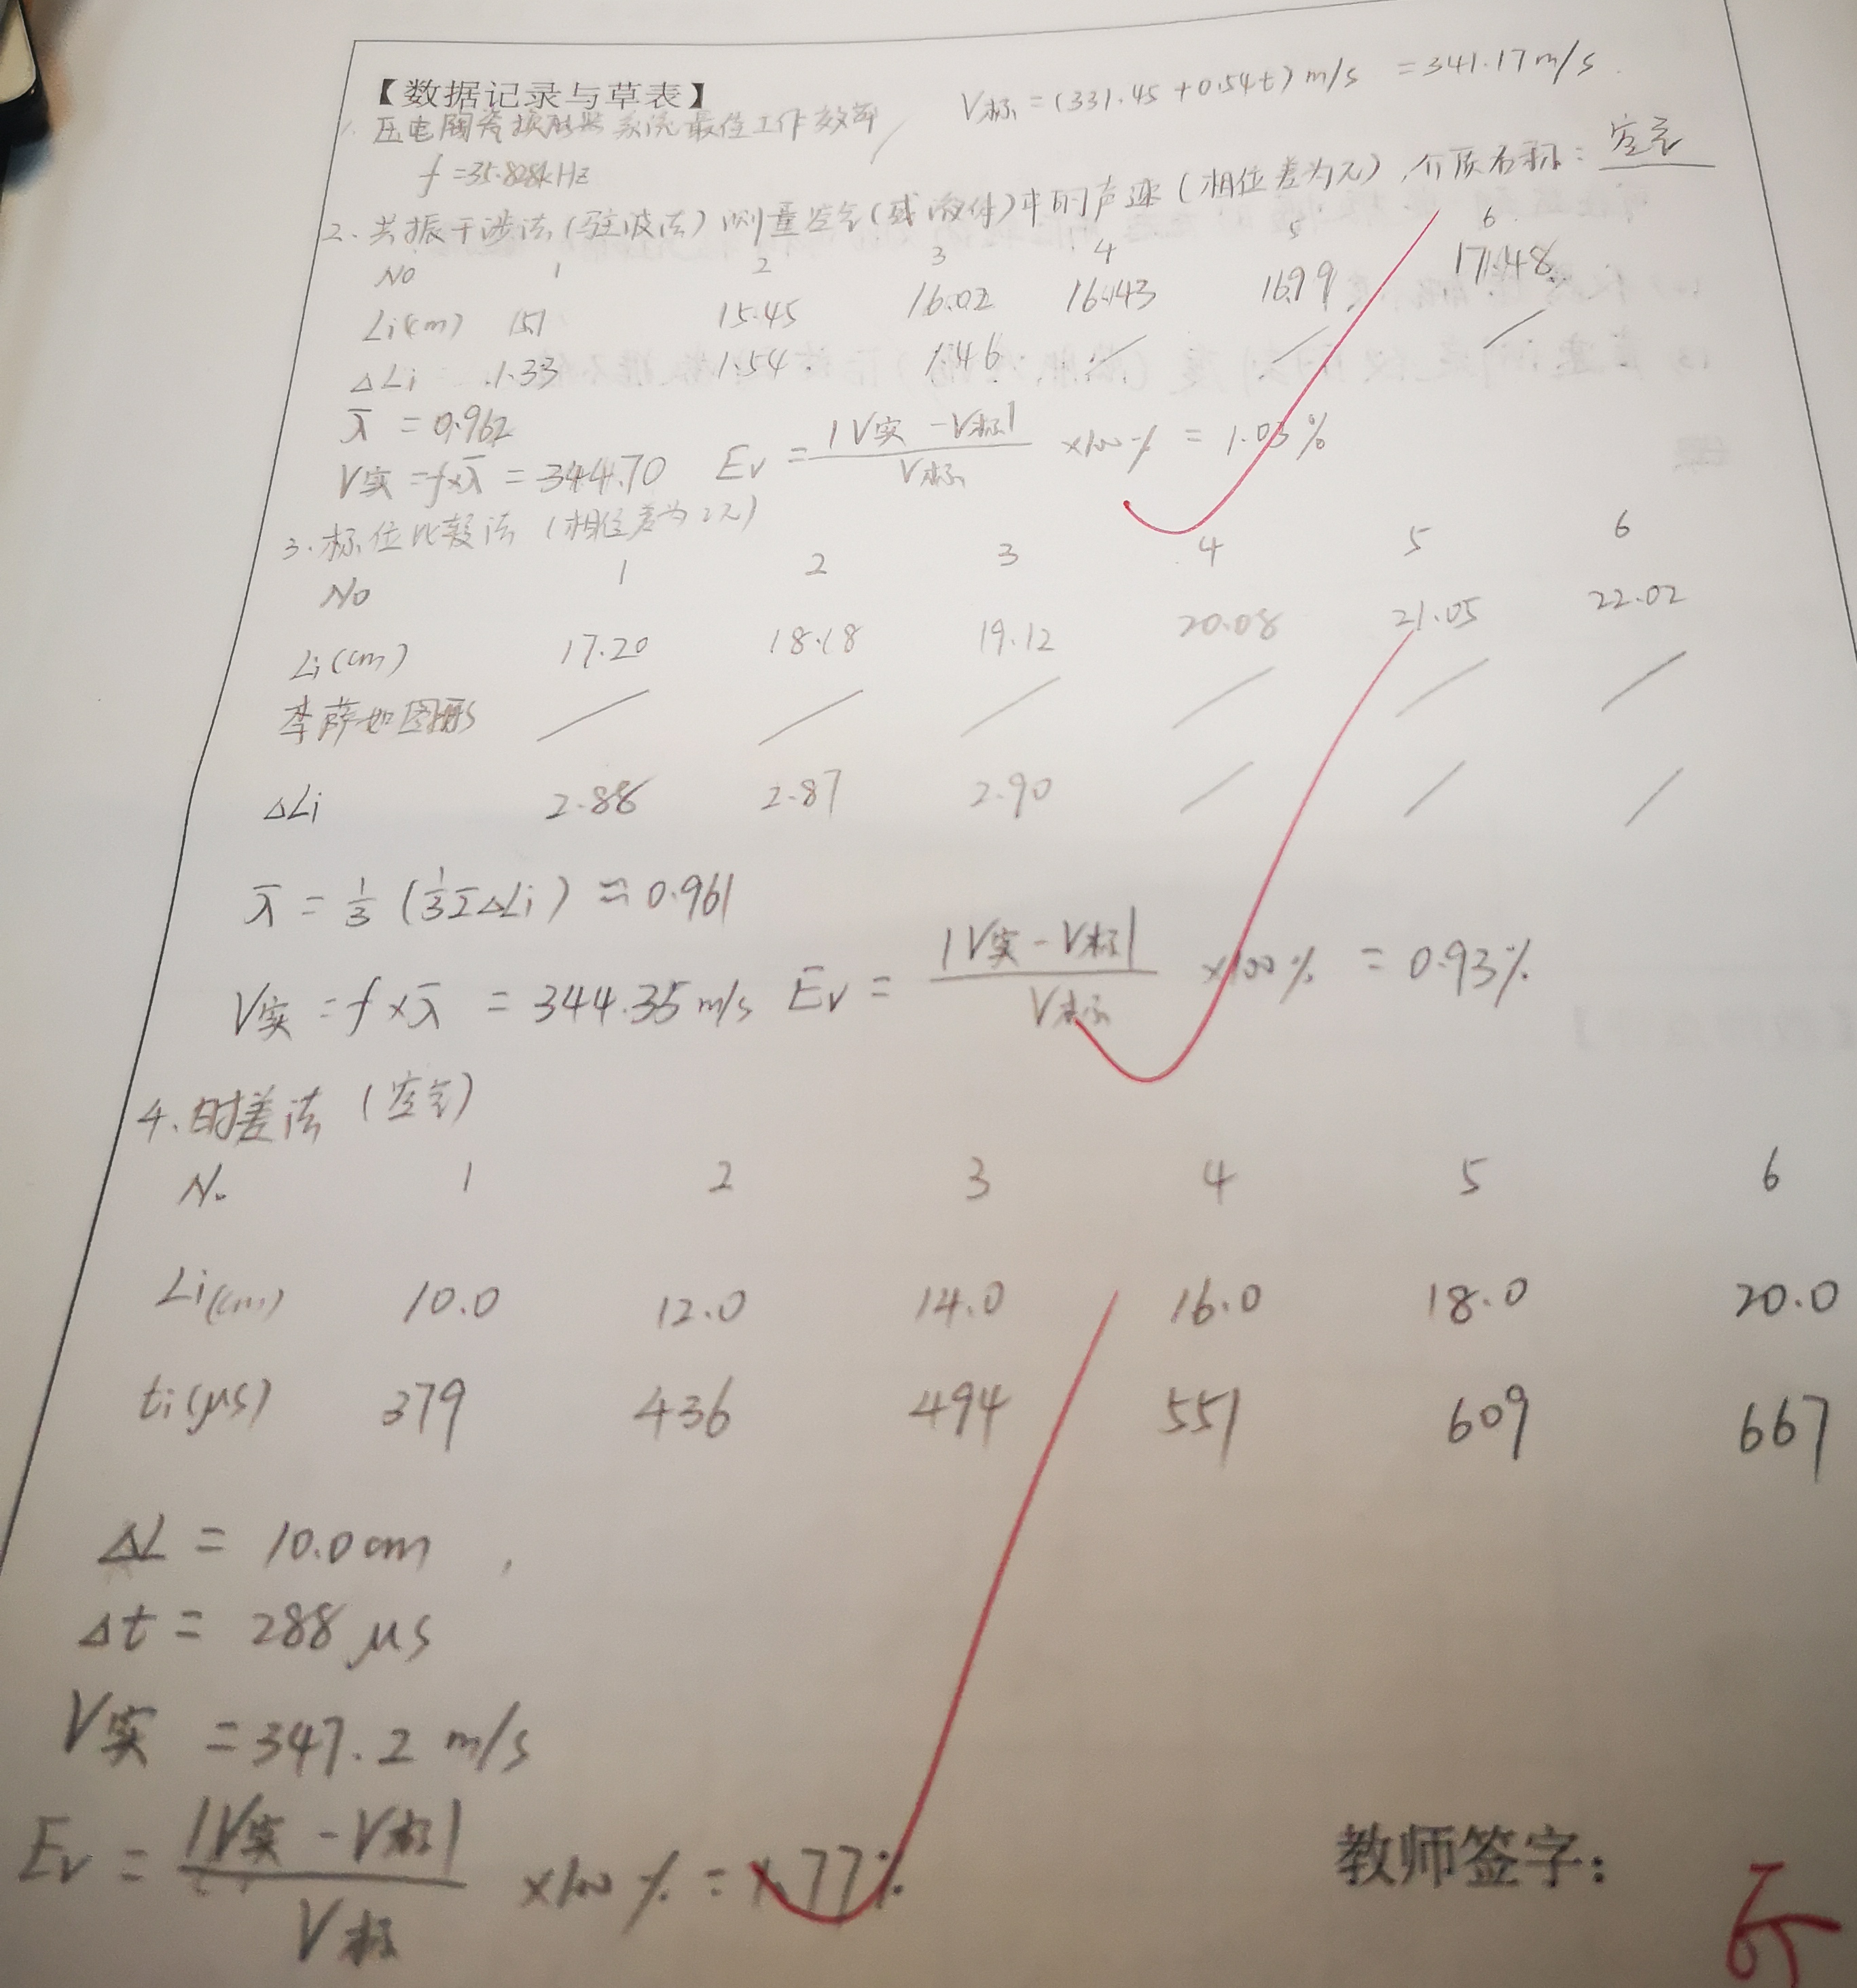 【数据记录与草表】
V标=(331.45+0.54t)m/s =341.17m/s
1.压电陶瓷换能器系统最佳工作效率
f=35.828kHz
2、共振干涉法(驻波法)测量空气(或液体)中的声速(相位差为π),介质名称:空气
No 1 2 3 4 5 6
Li(cm) 15.1 15.45 16.02 16.43 16.99 17.48
ΔLi 1.33 1.54 1.46 / / /
λ̄ =0.962
V实=f×λ̄ =344.70 Ev=|V实-V标|/V标 ×100% =1.03%
3.标位比较法(相位差为2π)
No 1 2 3 4 5 6
Li(cm) 17.20 18.18 19.12 20.08 21.05 22.02
李萨如图形 / / / / / /
ΔLi 2.88 2.87 2.90 / / /
λ̄ = 1/3 (1/3ΣΔLi) ≈0.961
V实=f×λ̄ =344.35m/s Ēv=|V实-V标|/V标 ×100% =0.93%
4、时差法(空气)
No 1 2 3 4 5 6
Li(cm) 10.0 12.0 14.0 16.0 18.0 20.0
ti(μs) 379 436 494 551 609 667
ΔL = 10.0cm,
Δt = 288μs
V实 =347.2 m/s
Ev=|V实-V标|/V标 ×100% =1.77%
教师签字: